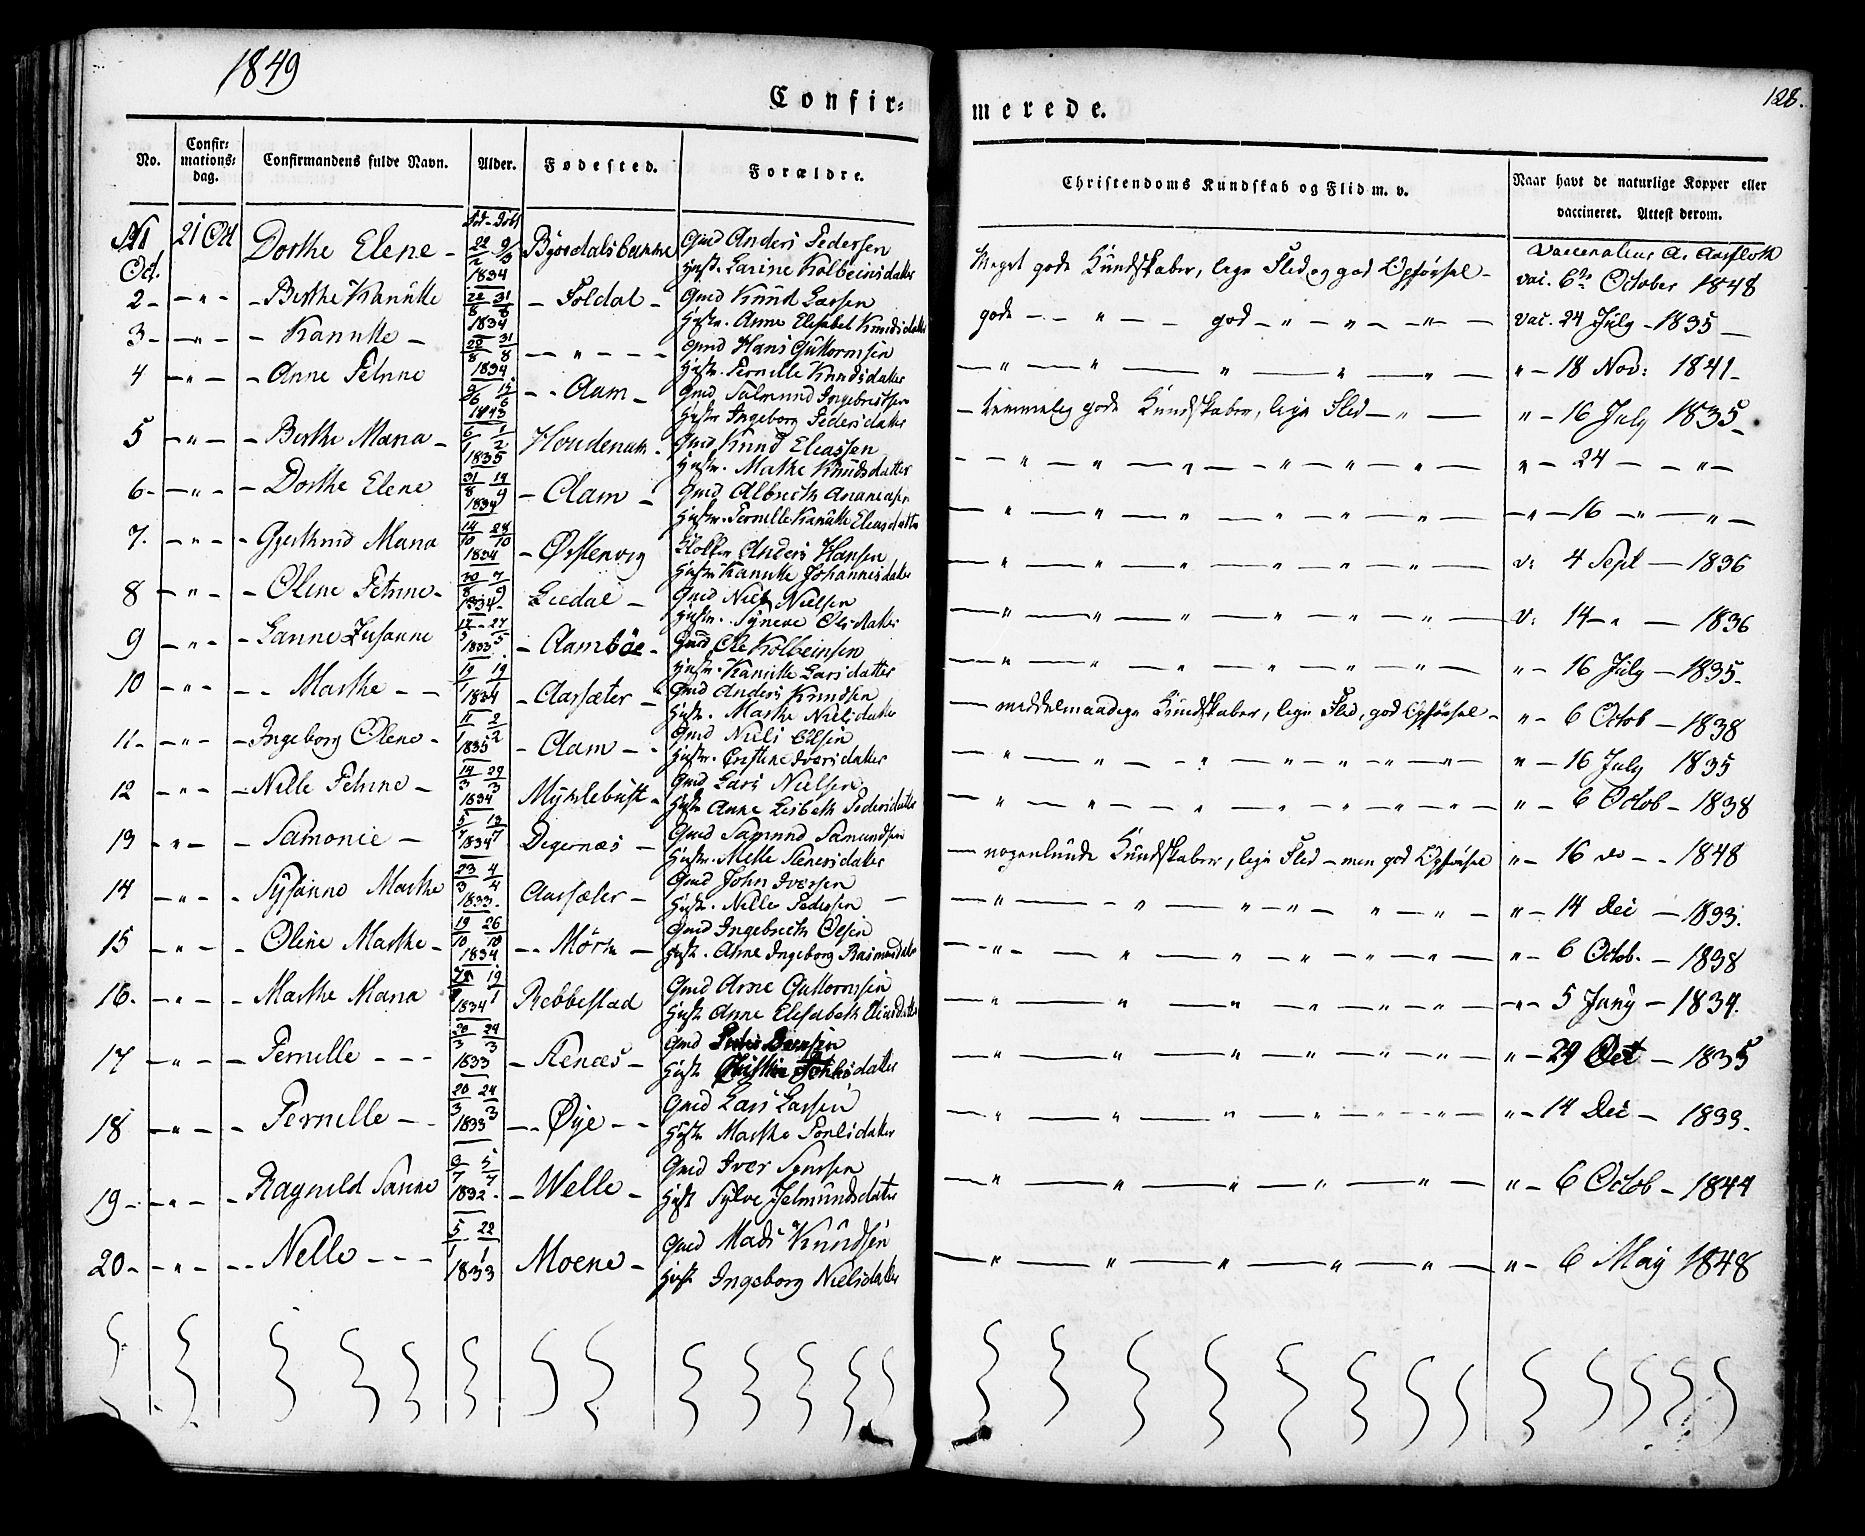 1849
128.
Confir=
merede.
No.
Confir=
mations=
dag.
Confirmandens fulde Navn.
Alder.
Fødested.
Forældre.
Christendoms Kundskab og Flid m. v.
Naar havt de naturlige Kopper eller
vaccineret. Attest derom.
Oct. 21 Oct Dorthe Elene - 1834 Gmd Anders Pedersen
Hust. Larine Kolbeinsdatter
Meget gode Kundskaber, lige Flid og god Opførsel - vac. 6te October 1848
2 - - " - - Berthe Kanutte 22/8 31/8 1834 - Foldal - Gmd Knud Larsen
Hustr. Anne Elisabet Knudsdatter
gode - - " - - god - " - " - " - vac. 24 July - 1835
3 - - " - - Kanutte - 22/8 31/8 1834 - - " - - - Gmd Hans Guttormsen
Hustr. Pernille Knudsdatter
" - 18 Nov: 1841 -
4 - " - - Anne Petrine - - Aam - Gmd Salmund Ingebretsen
Hustr Ingeborg Pedersdatter
- temmelig gode Kundskaber, lige Flid - " - " - 16 July 1835 -
5 - " - - Berthe Maria - 1835 Gmd Knud Eliassen
Hustr. Marthe Knudsdatter
" - 24 - - " -
6 - - " - - Dorthe Elene 31/8 19/9 1834 - Aam - Gmd Albreth
Hustr. Pernille Kanutte Eliasdatter
- " - 16 - " - " -
7. - " - - Gjerthrud Maria 14/10 28/10 1834 - Ørstenvig Klokker Anders Hansen
Hustr Kanutte Johannesdatter
v: 4 Sept - 1836
8 - " - - Oline Petrine - 30/8 7/9 1834 - Liedal - Gmd Niels Nielsen
Hustr. Synneve Olsdatter
v: 14 - " - 1836
9 - " - - Hanne Susanne 1835 - Aambøe - Gmd Ole Kolbeinsen
Hustr. Kanutte Larsdatter
" - 16 July - 1835 -
10 - " - - - Marthe - - 1834 - Aarsæter - Gmd Anders Knudsen
Hustr. Marthe Nielsdatter
- middelmaadige Kundskaber, lige Flid, god Opførsel - " - 6 Octob - 1838
11 - - " - - Ingeborg Oline - 1835 - Aam - - Gmd Niels Olsen
Hustr. Cristine Iversdatter
" - 16 July 1835
12 - " - - Nille Petrine - 14/3 29/3 1834 Myklebust - Gmd Lars Nielsen
Hustr Anne Lisbeth Pedersdatter
" - 6 Octob - 1838
13 - " - - Samonie - 5/7 13/7 1834 Digernæs - Gmd Samund Samundsen
Hustr. Nille Steensdatter
- nogenlunde Kundskaber, lige Flid - men god Opførsel " - 16 do - - 1848
14 - " - - Sysanne Marthe 23/3 4/4 1833. Aarsæter - Gmd John Iversen
Hustr. Nille Pedersen -
" - 14 Dec - 1833.
15 - " - - Oline Marthe - 19/10 26/10 1834 - - Mørk - Gmd Ingebreth Olsen
Hustr. Anne Ingeborg Rasmusdatter
" - 6 Octob. - 1838
16 - - " - - Marthe Maria 1834 Rebbestad Gmd Arne Guttormsen
Hustr Anne Elisabeth Eliasdatter
- " - 5 Juny - 1834.
17 - " - - Pernille - - - 20/3 24/3 1833 - Stenæs - Gmd
Hustr
" - 29 Oct - 1835
18 - " - - Pernille - - 20/3 24/3 1833 - - Øye - - Gmd Lars Larsen
Hustr Marthe Poulsdatter
" - 14 Dec - 1833 -
19 - - " - - Ragnild Hanne 5/7 1832 - - Welle - Gmd Iver
Hust Sylve Jetmundsdatter
" - 6 Octob - 1844
20 - - " - - - Nelle - - - 5/1 22/1 1833 Moene - Gmd Mads Knudsen
Hust Ingeborg Nielsdatter
" - 6 May 1848